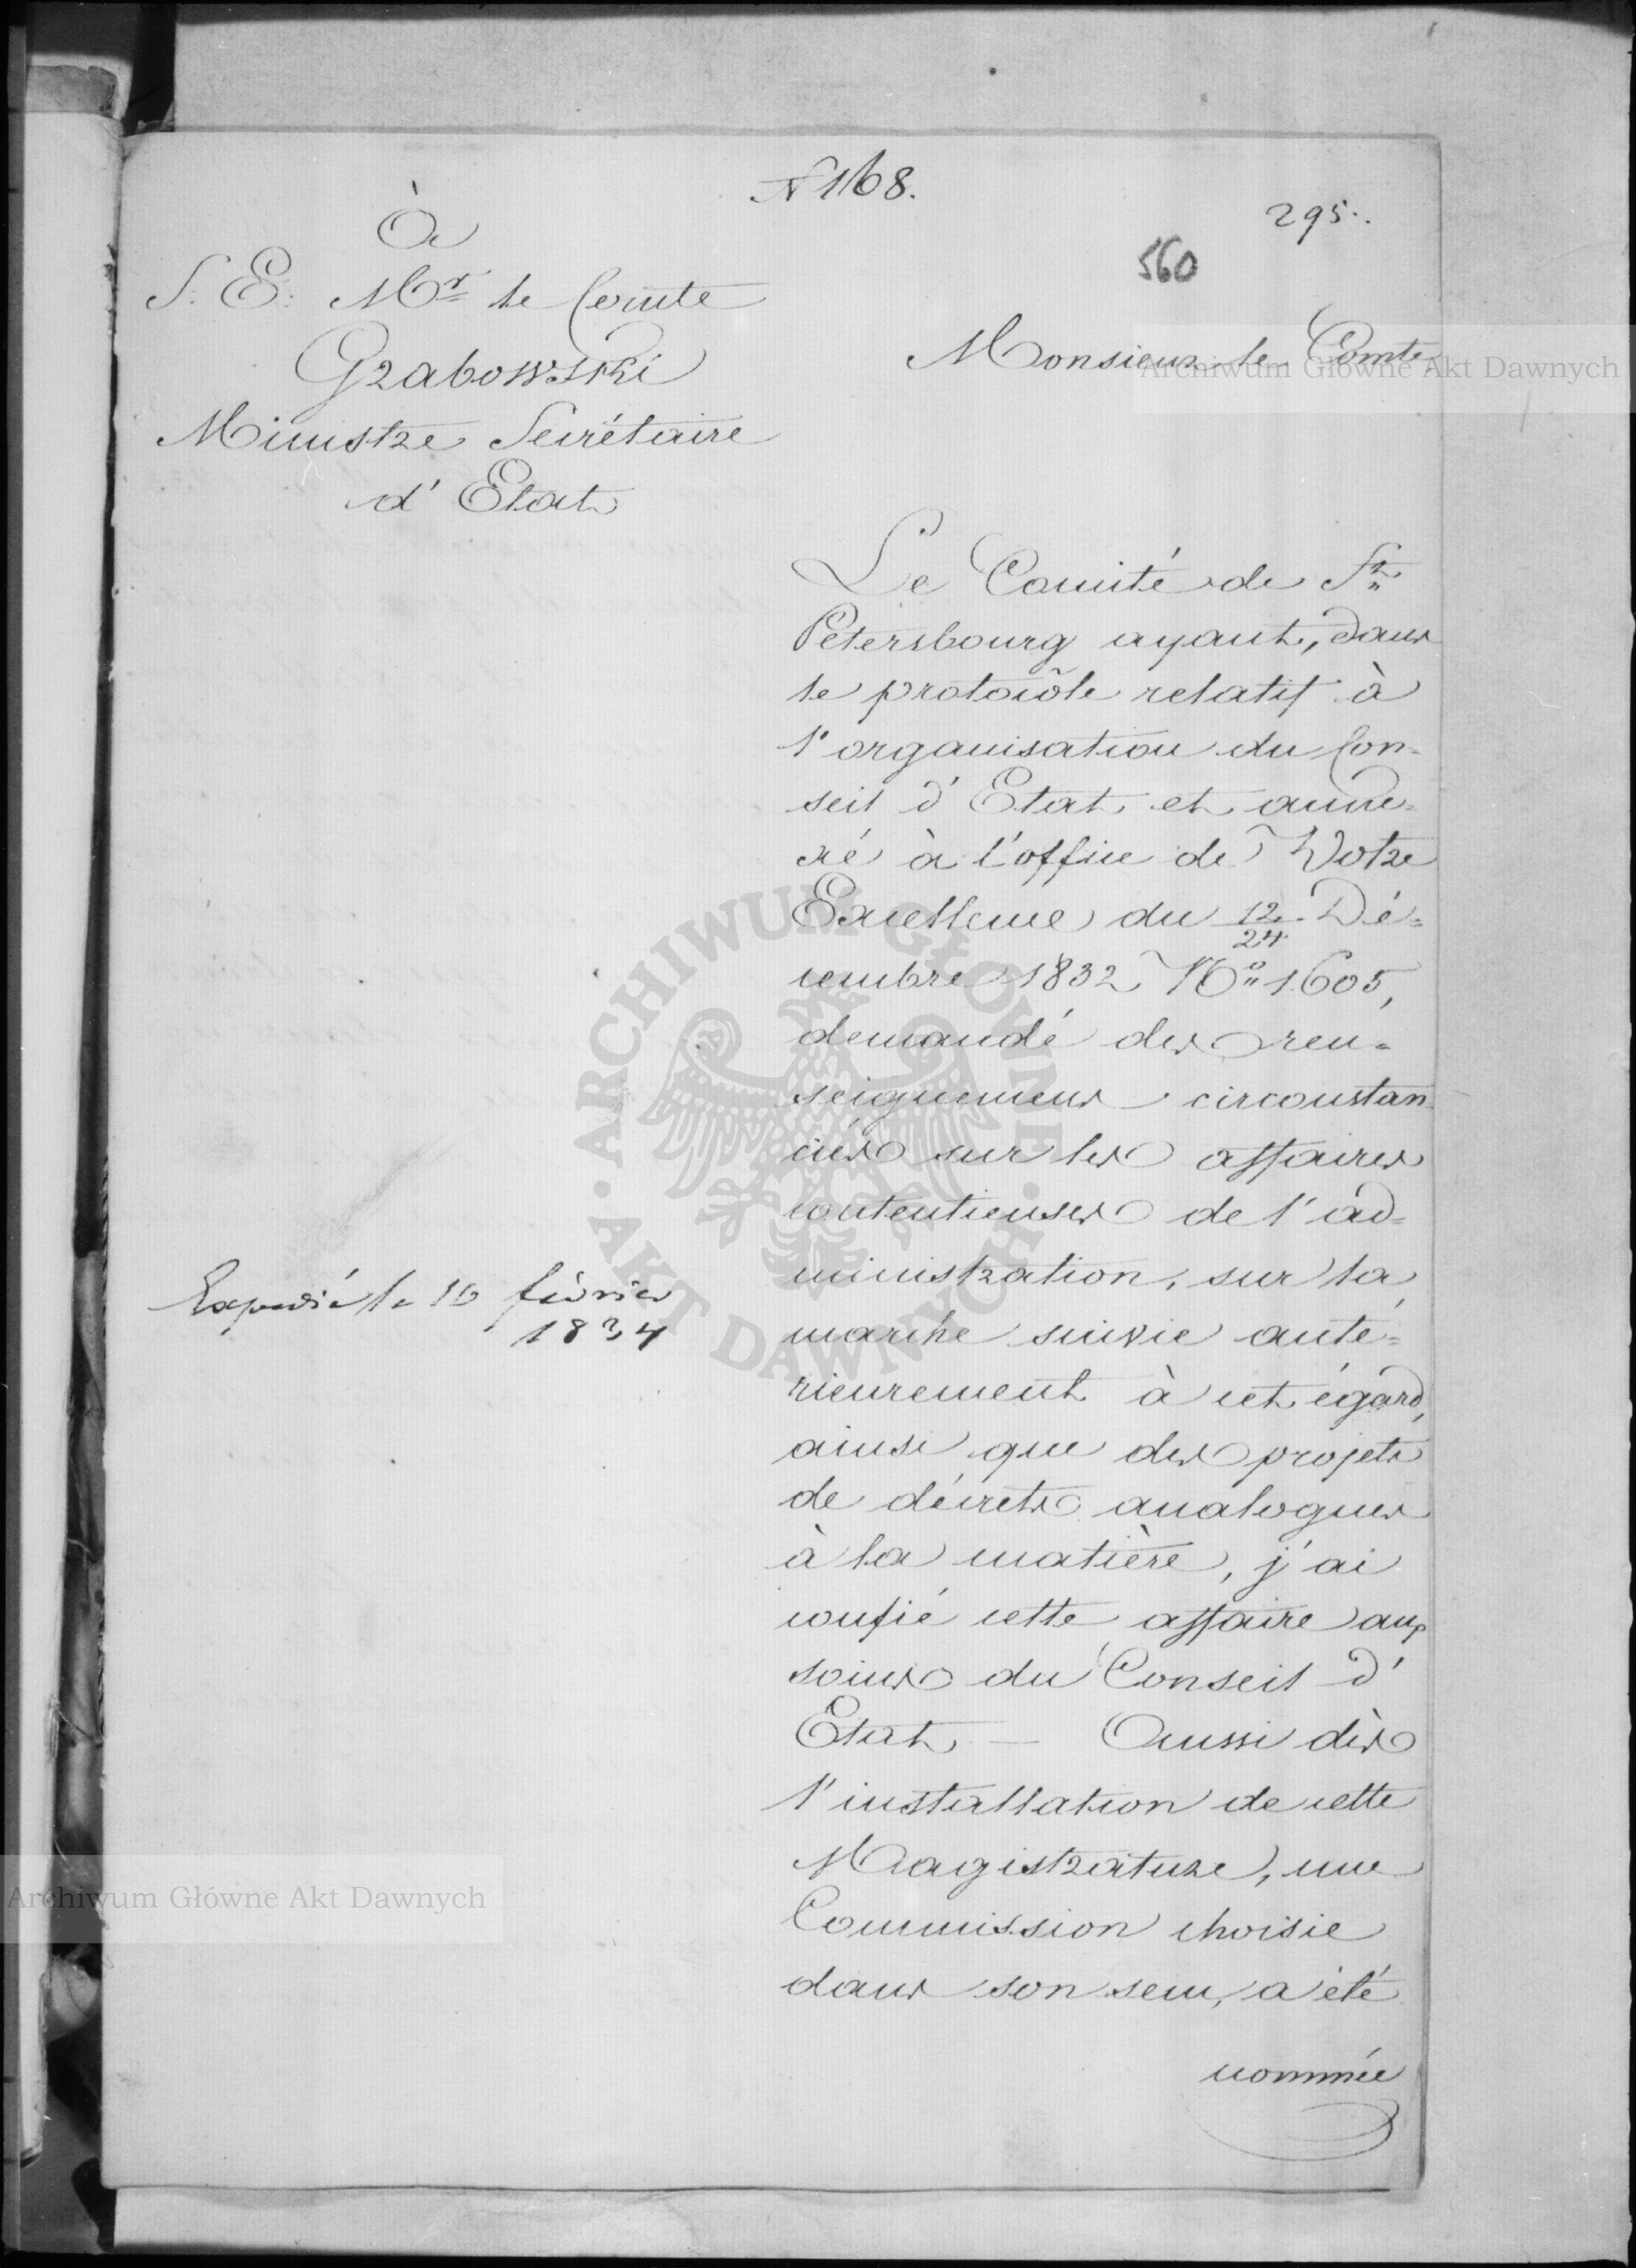 N 168.
295.
560
À
S. E. Mr le Comte
Grabowski
Ministre Secrétaire
d'Etat
Monsieur le Comte,
Le Comité de St
Petersbourg ayant, dans
le protocôle relatif à
l'organisation du Con=
seil d'Etat et anne=
xé à l'office de Votre
Excellence du 12/24 Dé=
cembre 1832 No 1605,
demandé des ren=
seignemens circonstan
ciés sur les affaires
contentieuses de l'ad=
ministration, sur la
marche suivie anté=
rieurement à cet égard,
ainsi que des projets
de décrets analogues
à la matière, j'ai
confié cette affaire aux
soins du Conseil d'
Etat — Aussi dès
l'installation de cette
Magistrature, une
Commission choisie
dans son sein, a été
nommée
Expédié le 16 février
1834
Archiwum Główne Akt Dawnych
Archiwum Główne Akt Dawnych
ARCHIWUM GŁÓWNE AKT DAWNYCH